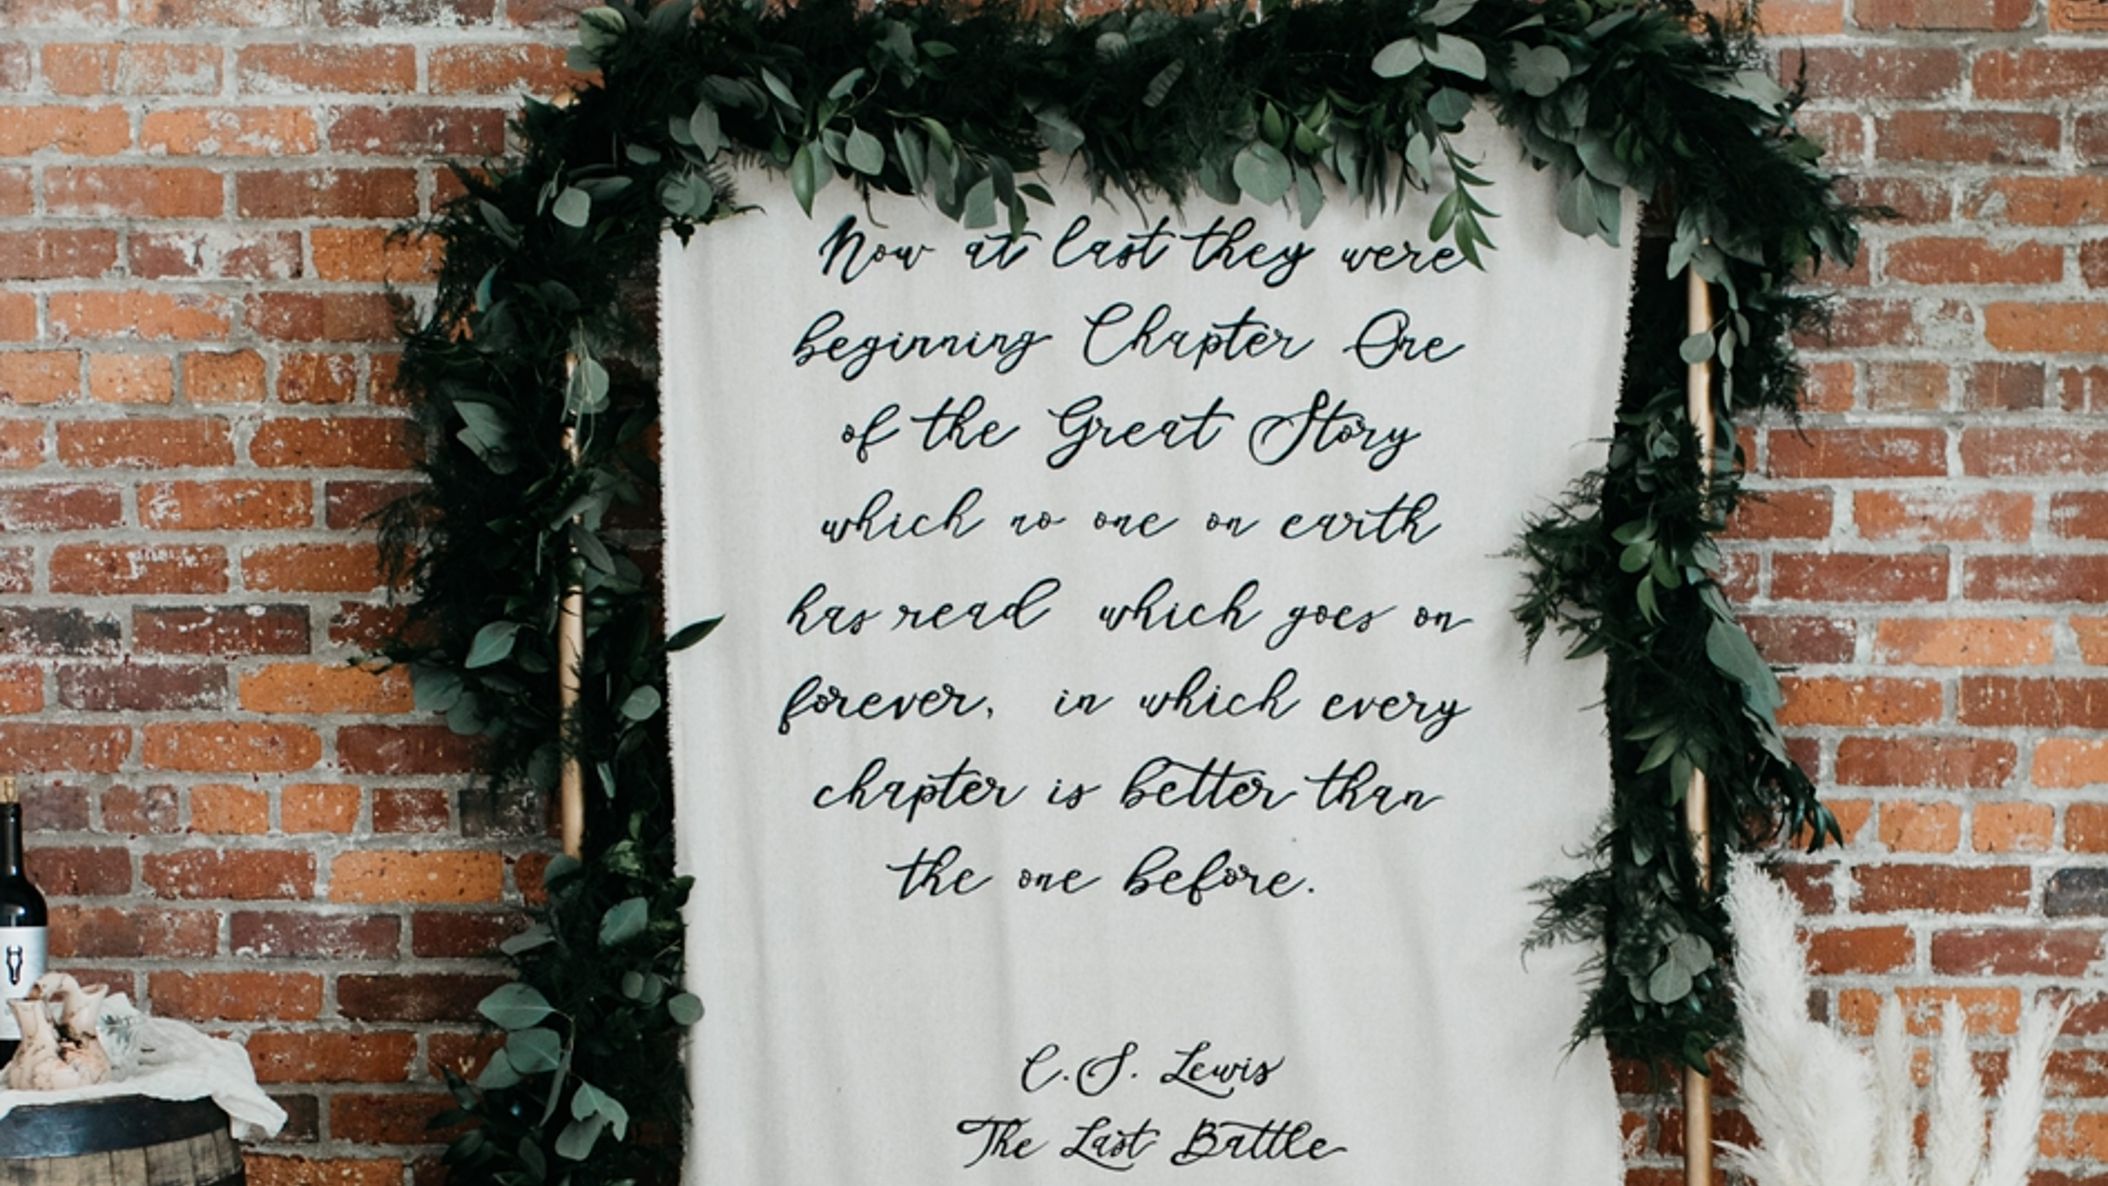 Now at last they were
beginning Chapter One
of the Great Story
which no one on earth
has read which goes on
forever, in which every
chapter is better than
the one before.
C.S. Lewis
The Last Battle